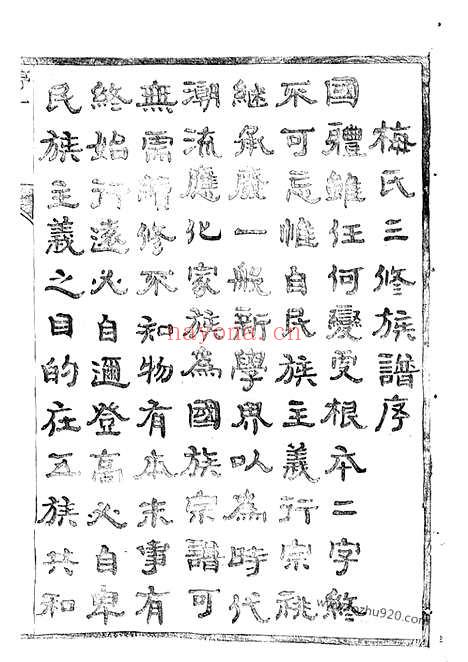 梅氏三修族譜序
國體雖任何變更根本二字終
不可忘惟自民族主義行宗祧
繼承廢一般新學界以為時代
潮流應化家族為國族宗譜可
無需續修不知物有本末事有
終始行遠必自邇登高必自卑
民族主義之目的在五族共和
hayona.cn